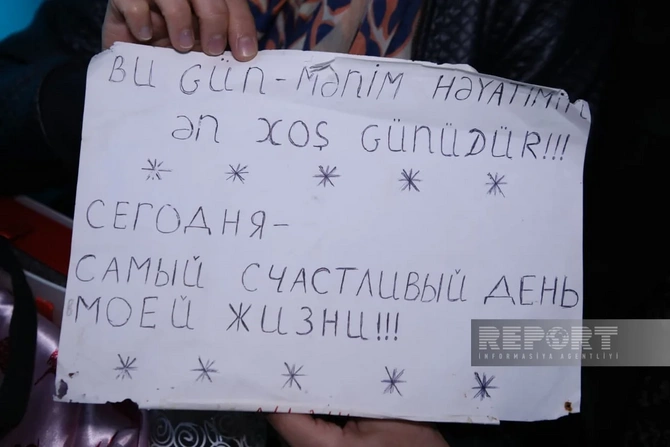 BU GÜN-MƏNİM HƏYATIMIN
ƏN XOŞ GÜNÜDÜR!!!
СЕГОДНЯ-
САМЫЙ СЧАСТЛИВЫЙ ДЕНЬ
МОЕЙ ЖИЗНИ!!!
REPORT
INFORMASİYA AGENTLİYİ